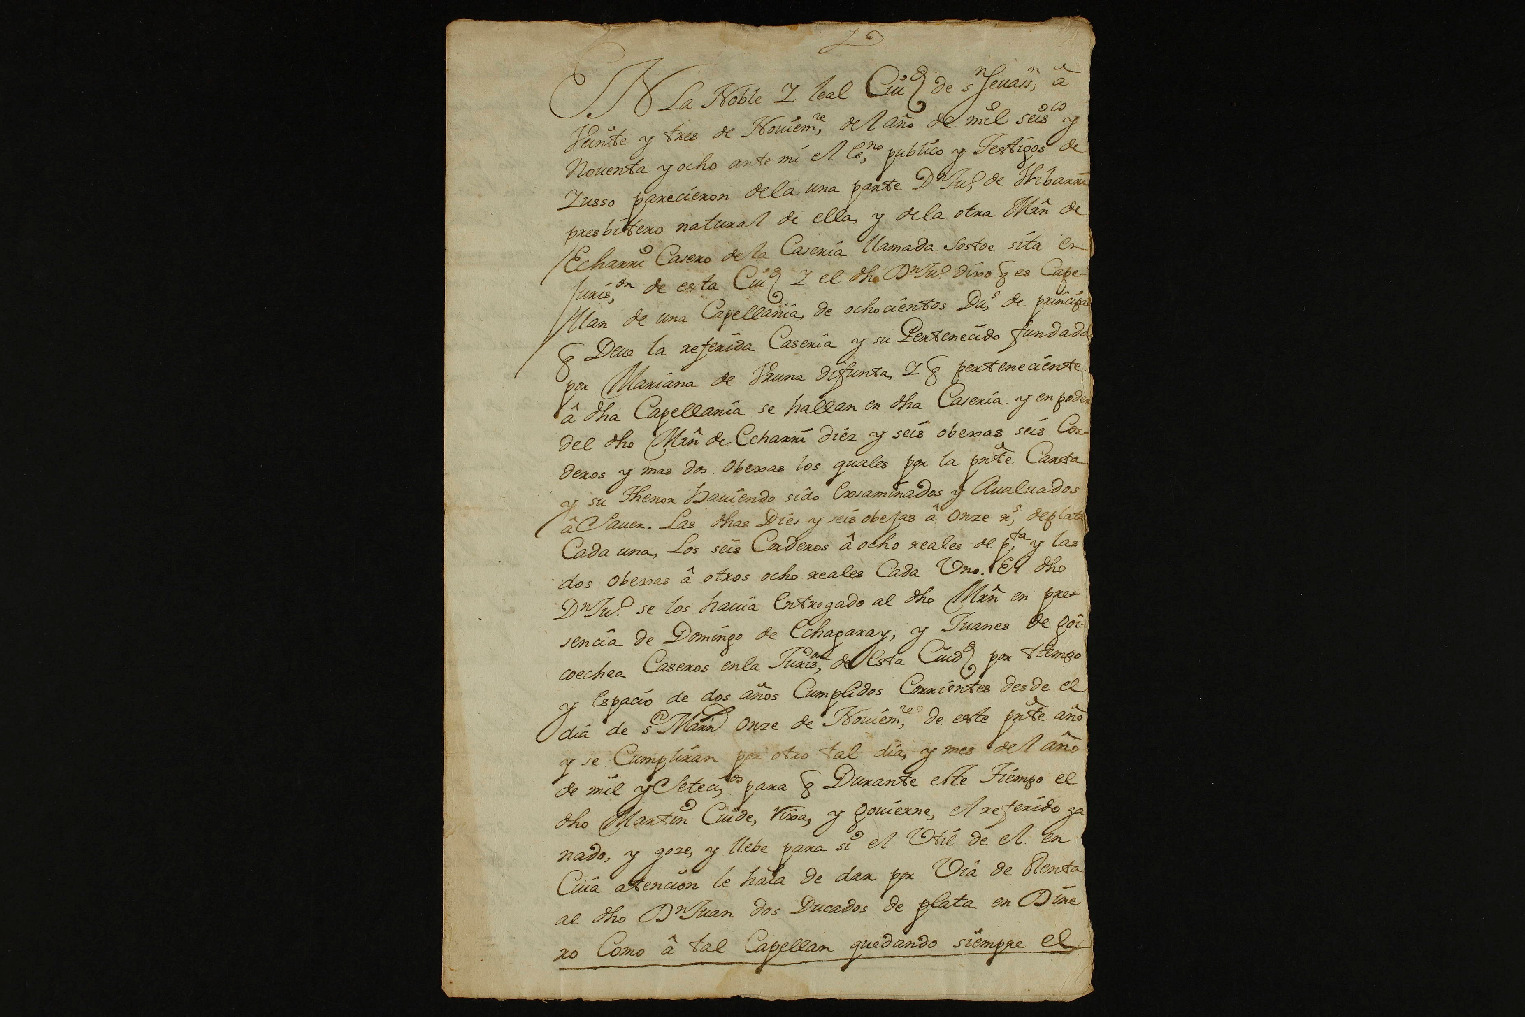 En La Noble Y leal Ciud de sn Seuan, â
Veinte y tres de Nouiemre, del año de mil seiscos y
Nouenta y ocho ante mi el esno, publico y Testigos de
Yusso parecieron de la una parte Dn Juo de Iribarren
presbitero natural de ella, y de la otra Mrñ de
Echarri Casero de la Caseria llamada Sostoe sita en
Jurison, de esta Ciud Y el dho Dn Juo dixo q es Cape-
llan de una Capellania, de ochocientos Dus de principal
q Deue la referida Caseria y su Pertenecido fundada
por Mariana de Vruna difunta, Y q perteneciente
â dha Capellania se hallan en dha Caseria y en poder
del dho Mrñ de Echarri diez y seis obexas seis Cor-
deros y mas dos obexas los quales por la prñte Carta
y su Thenor hauiendo sido Exsaminados y Aualuados
â Sauer. Las dhas Dies y seis obejas â Onze rs de plata
Cada una, Los seis Corderos â ocho reales de pta y las
dos obexas â otros ocho reales Cada Uno. El dho
Dn Juo se los hauia Entregado al dho Mrñ en pre-
sencia de Domingo de Echagaray, y Juanes de Goi-
coechea Caseros en la Jurison, de Esta Ciud por tiempo
y Espacio de dos años Cumplidos Corrientes desde el
dia de sn Marñ Onze de Nouiemre, de este prñte año
y se Cumpliran por otro tal dia, y mes del año
de mil y Setecos, para q Durante este Tiempo el
dho Martin Cuide, Rixa, y gouierne, el referido ga
nado, y goze, y llebe para si el Util de el en
Cuia atencion le haia de dar por Via de Renta
al dho Dn Juan dos Ducados de plata en Dine
ro Como â tal Capellan quedando siempre el